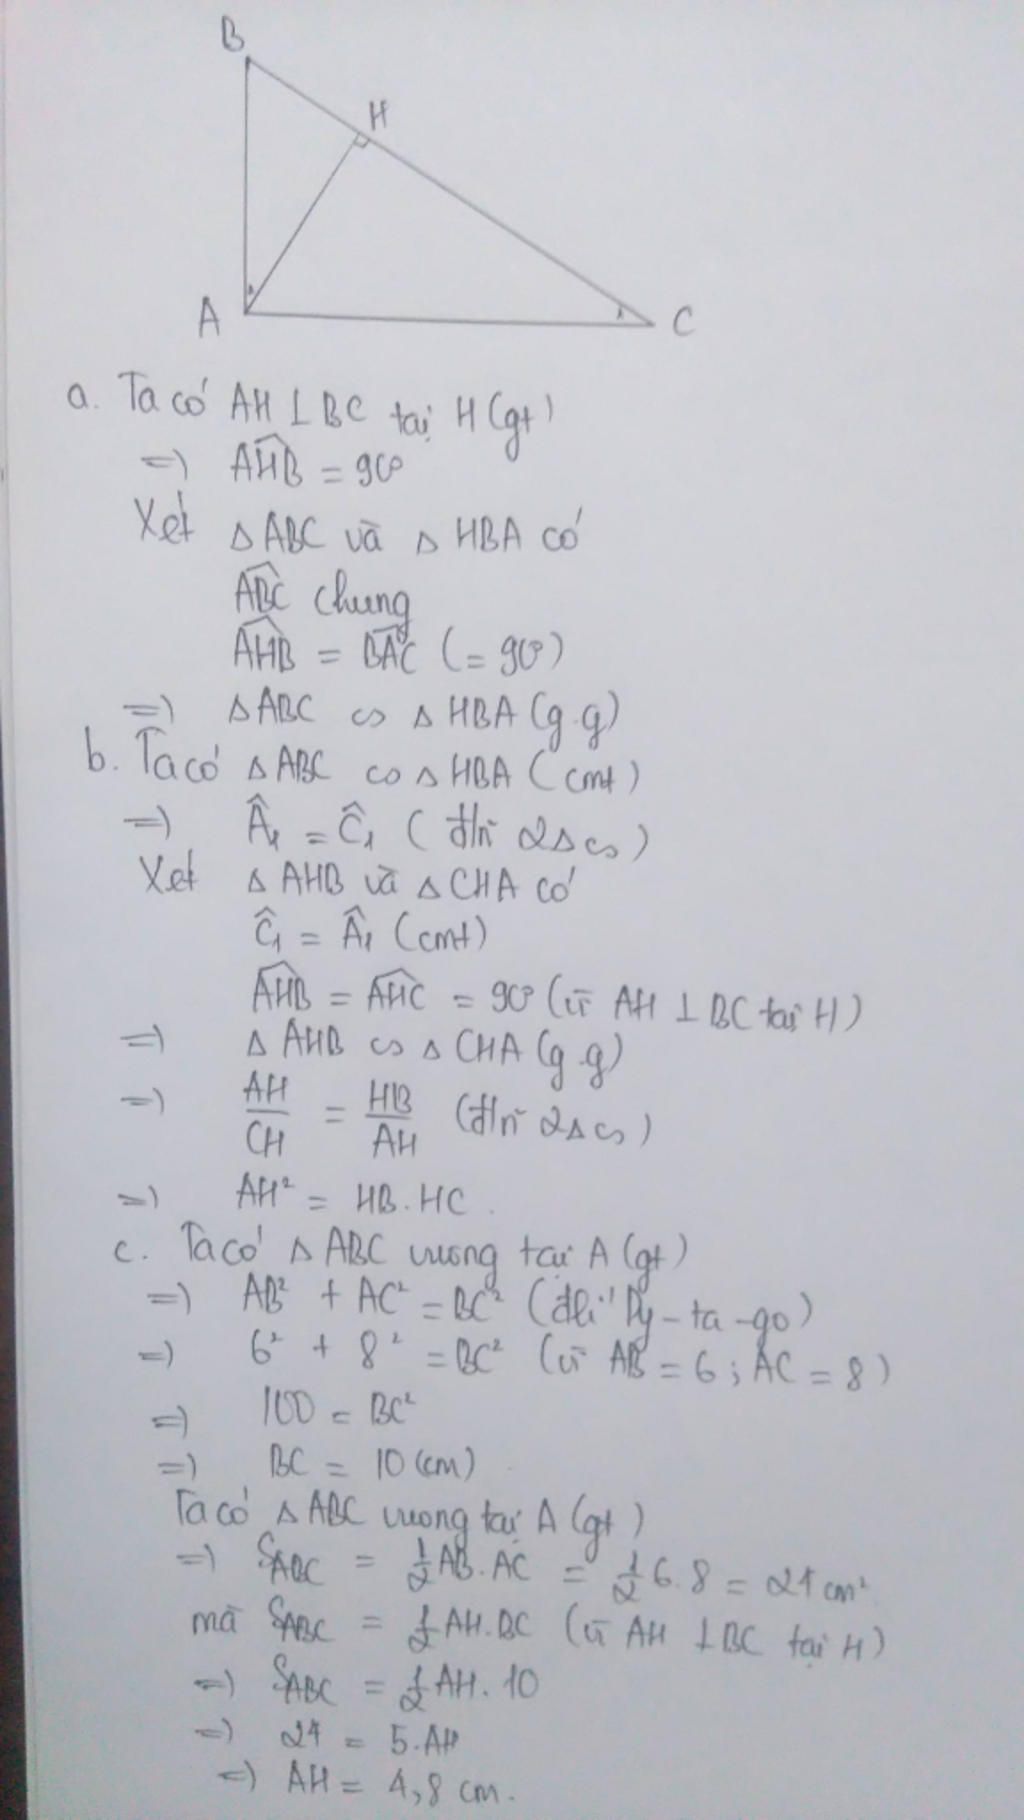 B
H
A
C
a. Ta có AH ⊥ BC tại H (gt)
=> ∠AHB = 90°
Xét △ ABC và △ HBA có
∠ABC chung
∠AHB = ∠BAC (= 90°)
=> △ ABC ∽ △ HBA (g.g)
b. Ta có △ ABC ∽ △ HBA (cmt)
=> Â₁ = Ĉ₁ ( đ/n 2△ ∽ )
Xét △ AHB và △ CHA có
Ĉ₁ = Â₁ (cmt)
∠AHB = ∠AHC = 90° (vì AH ⊥ BC tại H)
=> △ AHB ∽ △ CHA (g.g)
=> AH/CH = HB/AH (đ/n 2△ ∽ )
=> AH² = HB.HC.
c. Ta có △ ABC vuông tại A (gt)
=> AB² + AC² = BC² (đlí Py-ta-go)
=> 6² + 8² = BC² (vì AB = 6 ; AC = 8)
=> 100 = BC²
=> BC = 10 (cm)
Ta có △ ABC vuông tại A (gt)
=> S_ABC = 1/2 AB.AC = 1/2 6.8 = 24 cm²
mà S_ABC = 1/2 AH.BC (vì AH ⊥ BC tại H)
=> S_ABC = 1/2 AH.10
=> 24 = 5.AH
=> AH = 4,8 cm.